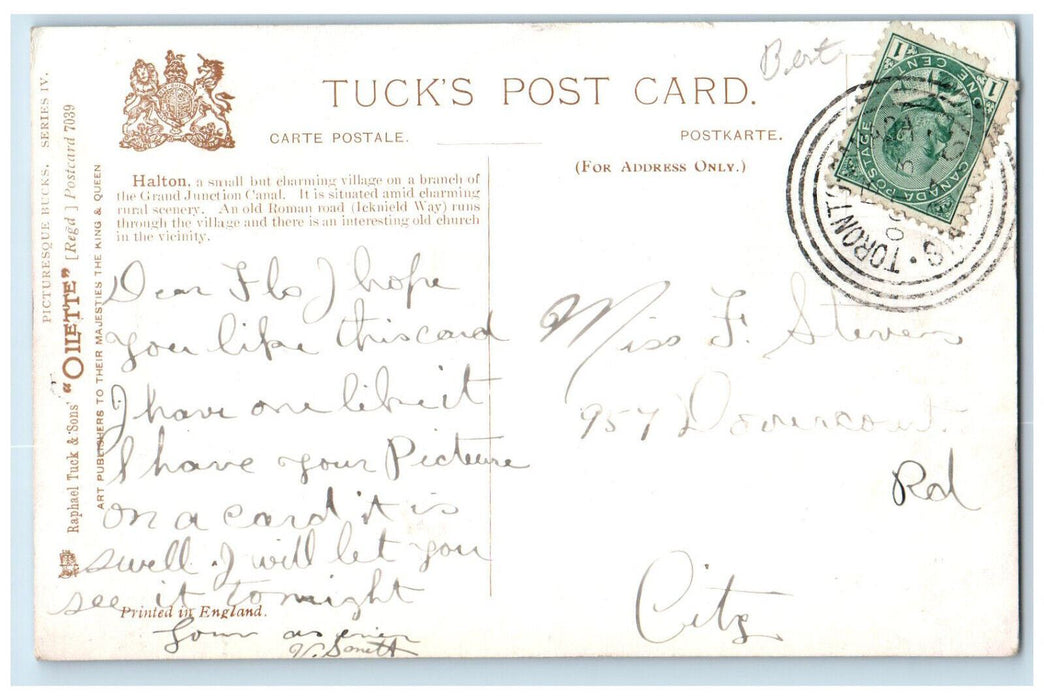 Bert
TUCK'S POST CARD.
CARTE POSTALE.
POSTKARTE.
(FOR ADDRESS ONLY.)
PICTURESQUE BUCKS. SERIES IV.
Raphael Tuck & 'Sons' "OILETTE" [Regd.] Postcard 7039
ART PUBLISHERS TO THEIR MAJESTIES THE KING & QUEEN
Halton, a small but charming village on a branch of
the Grand Junction Canal. It is situated amid charming
rural scenery. An old Roman road (Icknield Way) runs
through the village and there is an interesting old church
in the vicinity.
Dear Flo I hope
you like this card
I have one like it
I have your Picteure
on a card it is
swell. I will let you
see it tonight
Printed in England.
Your as ever
V. Smith
Miss F. Stevens
957 Dovercourt
Rd
City
1 ONE CENT 1
CANADA POSTAGE
TORONTO